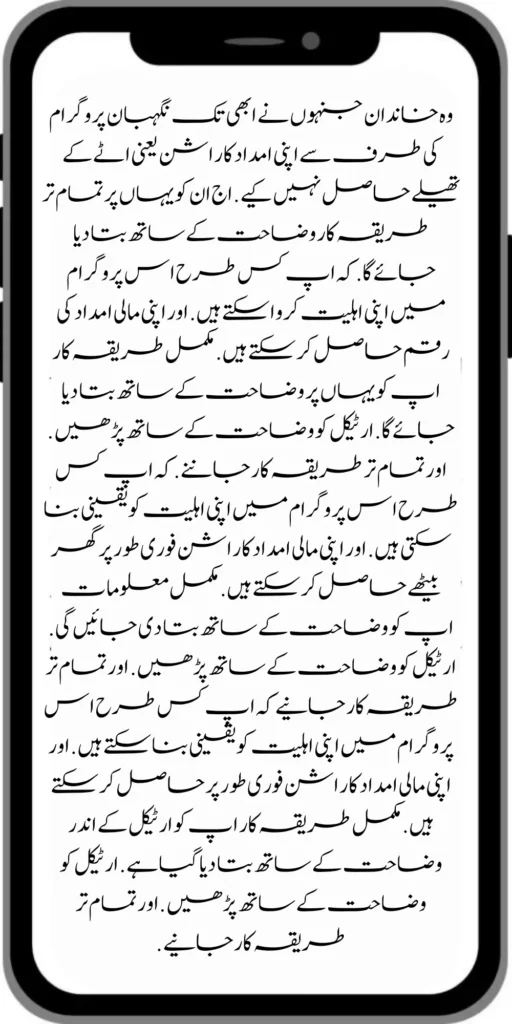 وہ خاندان جنہوں نے ابھی تک نگہبان پروگرام
کی طرف سے اپنی امداد کا راشن یعنی اٹے کے
تھیلے حاصل نہیں کیے. اج ان کو یہاں پر تمام تر
طریقہ کار وضاحت کے ساتھ بتا دیا
جائے گا. کہ اپ کس طرح اس پروگرام
میں اپنی اہلیت کروا سکتے ہیں. اور اپنی مالی امداد کی
رقم حاصل کر سکتے ہیں. مکمل طریقہ کار
اپ کو یہاں پر وضاحت کے ساتھ بتا دیا
جائے گا. ارٹیکل کو وضاحت کے ساتھ پڑھیں.
اور تمام تر طریقہ کار جاننے. کہ اپ کس
طرح اس پروگرام میں اپنی اہلیت کو یقینی بنا
سکتی ہیں. اور اپنی مالی امداد کا راشن فوری طور پر گھر
بیٹھے حاصل کر سکتے ہیں. مکمل معلومات
اپ کو وضاحت کے ساتھ بتا دی جائیں گی.
ارٹیکل کو وضاحت کے ساتھ پڑھیں. اور تمام تر
طریقہ کار جانیے کہ اپ کس طرح اس
پروگرام میں اپنی اہلیت کو یقینی بنا سکتے ہیں. اور
اپنی مالی امداد کا راشن فوری طور پر حاصل کر سکتے
ہیں. مکمل طریقہ کار اپ کو ارٹیکل کے اندر
وضاحت کے ساتھ بتا دیا گیا ہے. ارٹیکل کو
وضاحت کے ساتھ پڑھیں. اور تمام تر
طریقہ کار جانیے.